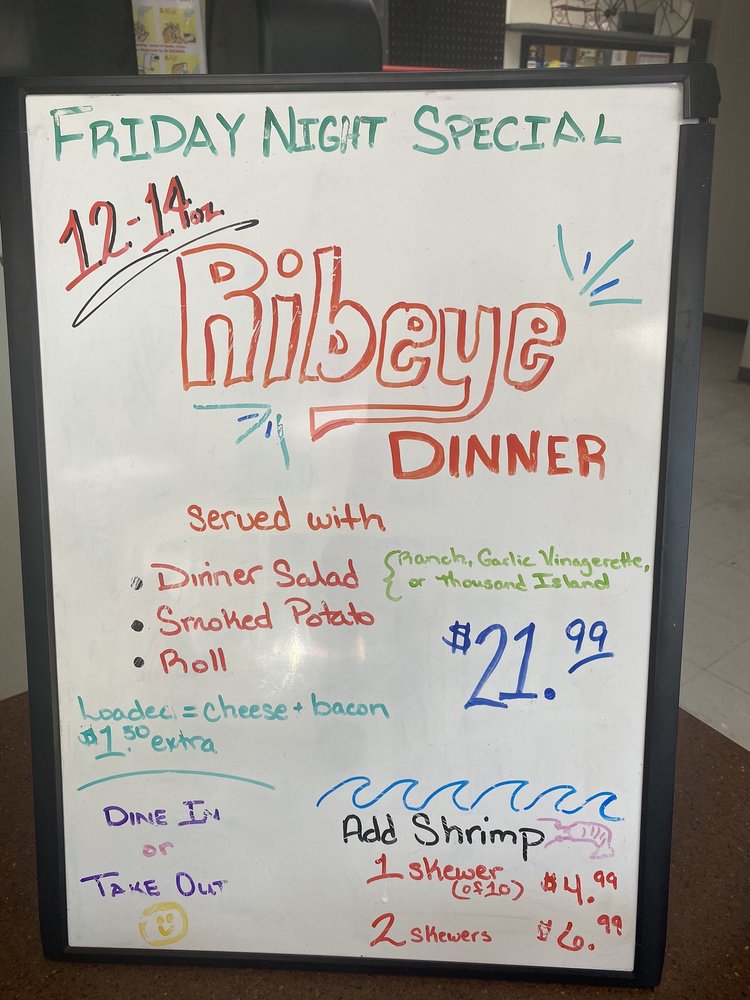 FRIDAY NIGHT SPECIAL
12-14oz.
Ribeye
DINNER
served with
• Dinner Salad {Ranch, Garlic Vinagerette,
or Thousand Island
• Smoked Potato
• Roll
$21.99
Loaded = cheese + bacon
$1.50 extra
DINE IN
or
TAKE OUT
Add Shrimp
1 skewer
(of 10) $4.99
2 skewers $6.99